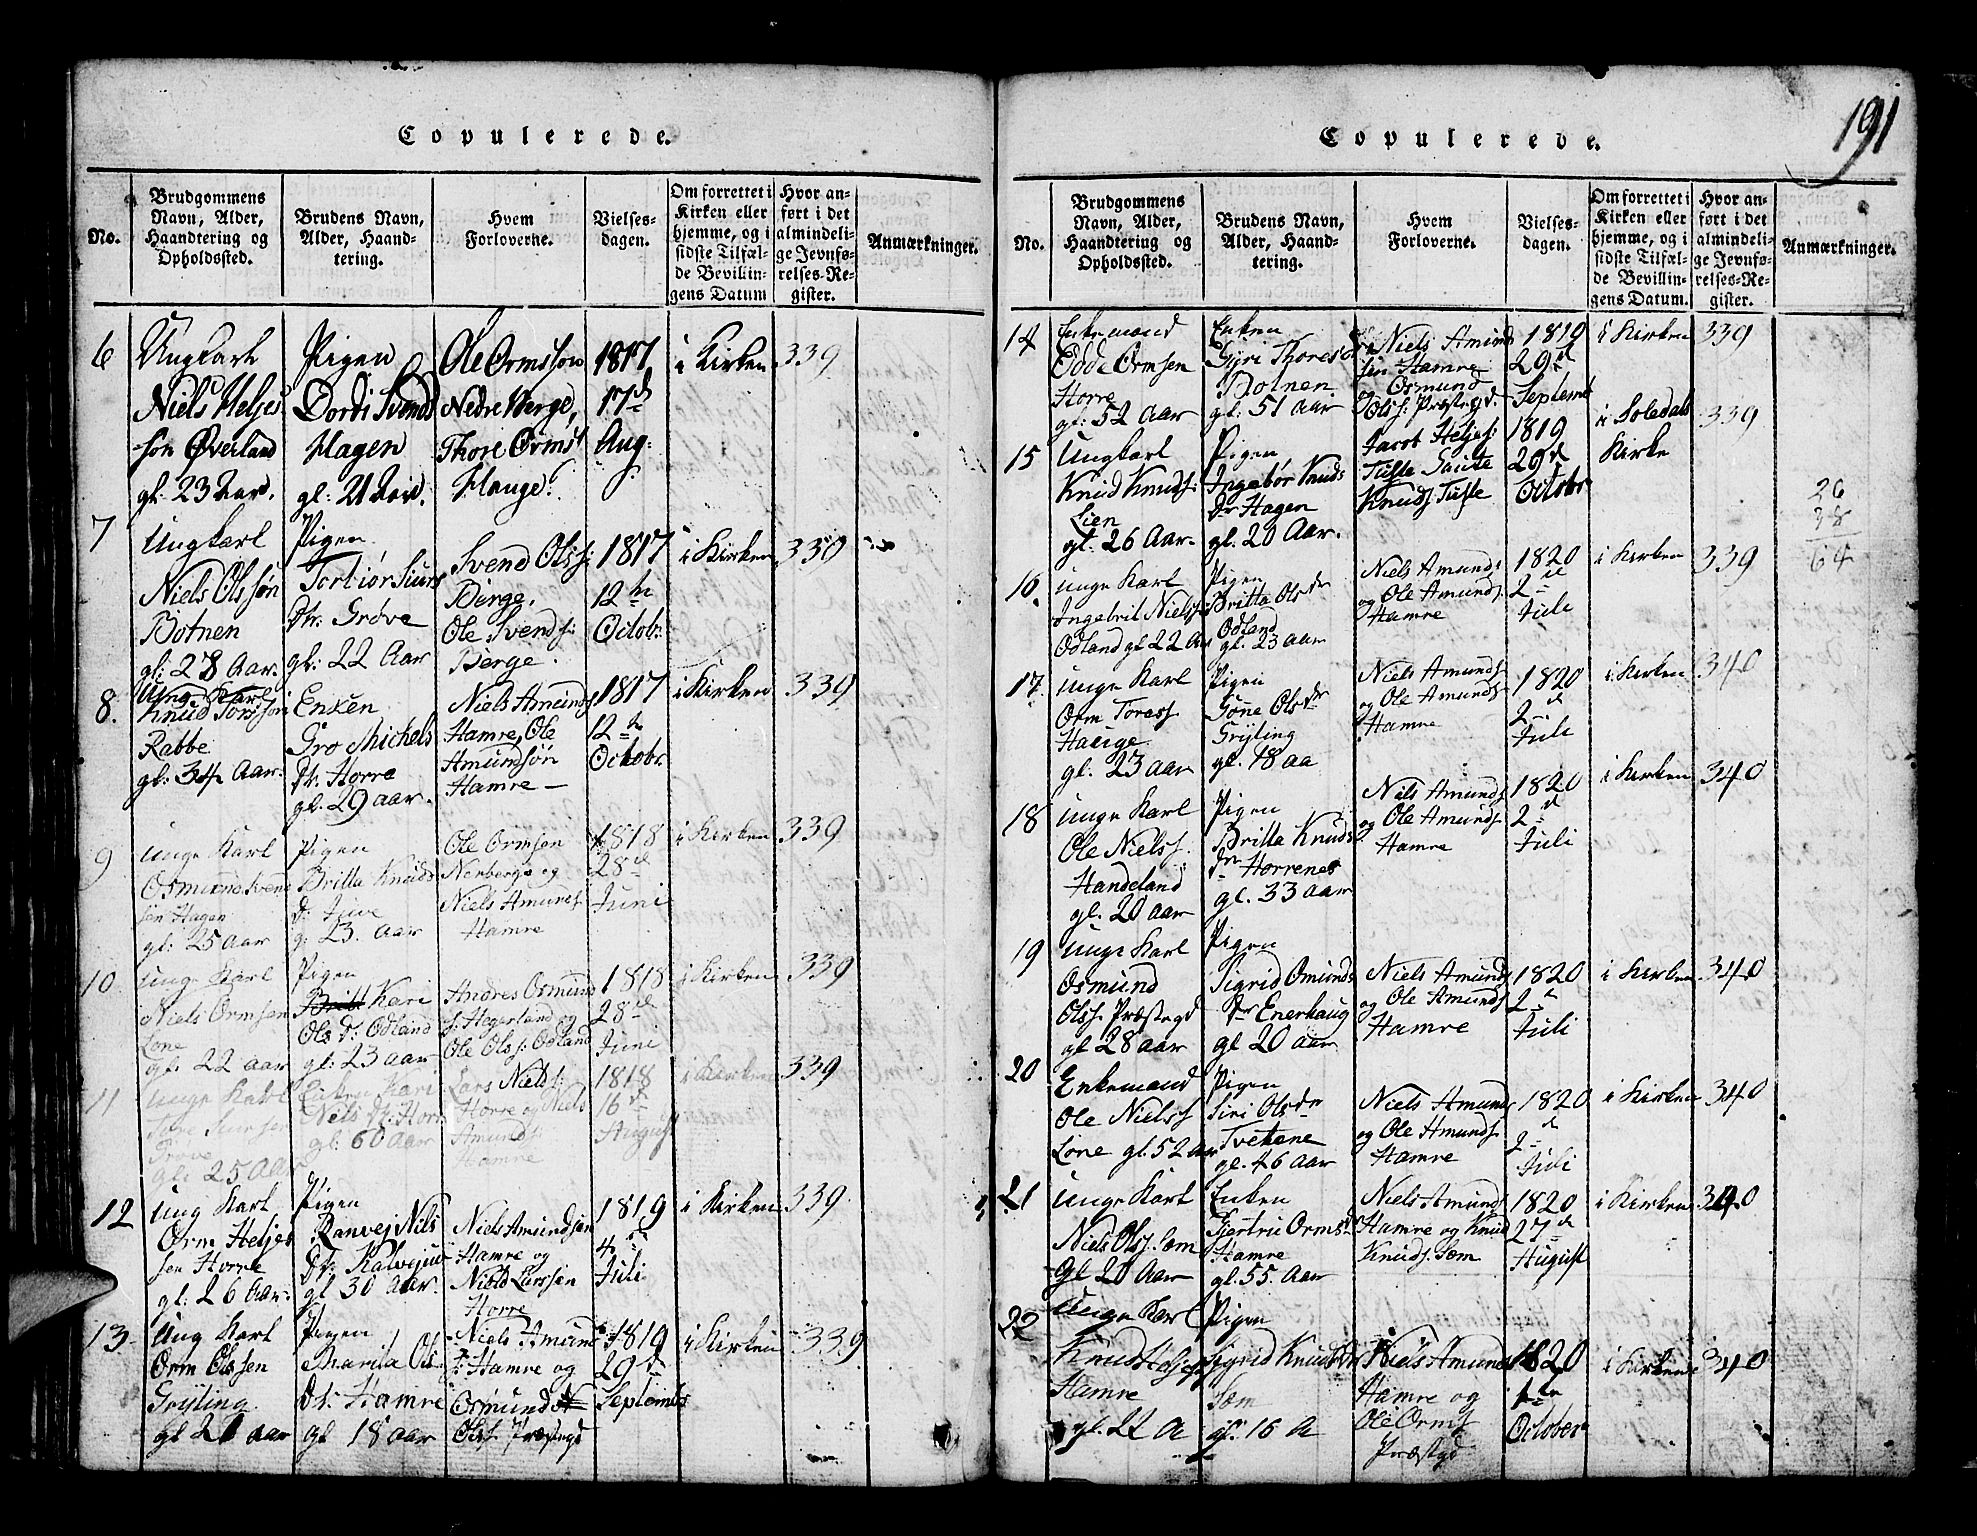 191
Copulerede.
No.
Brudgommens Navn, Alder, Haandtering og Opholdssted.
Brudens Navn, Alder, Haandtering.
Hvem Forloverne.
Vielsesdagen.
Om forrettet i Kirken eller hjemme, og i sidste Tilfælde Bevillingens Datum
Hvor anført i det almindelige Jevnførelses-Register.
Anmærkninger.
6
Ungkarl
Niels Heljes
søn Øverland
gl. 23 Aar.
Pigen
Dordi Svends
Hagen
gl: 21 Aar.
Ole Ormssøn
Nedre Berge,
Thore Orms
Hauge.
1817
17d
Aug:
i Kirken
339
7
Ungkarl
Niels Olssøn
Botnen
gl: 28 Aar.
Pigen
Torbiør Siurs
Dr. Grøve
gl: 22 Aar
Svend Olss:
Berge,
Ole Svends:
Berge.
1817
12te
Octobr.
i Kirken
330
8.
Unge Karl
Knud Torssøn
Rabbe
gl: 34 Aar.
Enken
Gro Michels
Dr. Horre
gl. 29 aar.
Niels Amunds
Hamre, Ole
Amundsøn
Hamre —
1817
12te
Octobr.
i Kirken
339
9
unge Karl
Osmund Svend
sen Hagen
gl: 25 Aar
Pigen
Britta Knuds
Dr. Juve
g: 23. aar
Ole Ormsen
Nerberge og
Niels Amunds
Hamre
1818
28de
Juni
i Kirken
339
10.
unge Karl
Niels Ormsen
Lone
gl. 22 aar
Pigen
Kari
Ols Dr. Odland
gl: 23 aar
Andres Osmund
s: Hegerland og
Ole Olss: Odland
1818
28de
Juni
i Kirken
339
11
unge Karl
Grøve
gl: 25 Aar
Enken Kari
Niels Dr. Horre
gl: 60 Aar
Lars Niels:
Horre og Niels
Amunds:
Hamre
1818
16de
August
i Kirken
339
12
Ung Karl
Orm Heljes
sen Horre
gl: 26 Aar.
Pigen
Ranvej Nils
Dr. Kalvejuv
gl 30 aar.
Niels Amundsen
Hamre og
Niold Larssen
Horre
1819
4de
Juli
i Kirken
339
13.
Ung Karl
Orm Olssen
Gryting
gl 21 aar
Pigen
Marita Ols
Dr. Hamre
gl 18 aar
Niels Amund
s: Hamre og
Osmund
Olss. Præstegd
1819
29de
Septembr
i Kirken
339
Copulerede.
No.
Brudgommens Navn, Alder, Haandtering og Opholdssted.
Brudens Navn, Alder, Haandtering.
Hvem Forloverne.
Vielsesdagen.
Om forrettet i Kirken eller hjemme, og i sidste Tilfælde Bevillingens Datum.
Hvor anført i det almindelige Jevnførelses-Register.
Anmærkninger.
14
Enkemand
Edde Ormsen
Horre
gl: 52 Aar
Enken
Gyri Thores
Botnen
gl: 51 aar
Niels Amund
sen Hamre
og Osmund
Olss: Præstegd.
1819
29de
Septembr
i Kirken
339
15
Ungkarl
Knud Knuds:
Lien
gl. 26 Aar.
Pigen
Ingebør Knuds
Dr Hagen
gl. 20 Aar.
Jacob Heljes:
Tufte Saute
Knuds Tufte
1819
29de
Octobr
i Soledals
Kirke
339
26
38
64
16.
unge Karl
Ingebrit Nielss
Odland gl 22 Aar
Pigen
Britta Olsdr
Odland
gl. 23 aar
Niels Amunds
og Ole Amunds
Hamre
1820
2de
Juli
i Kirken
339
17.
unge Karl
Orm Toress.
Hauge
gl. 23 aar
Pigen
Gøne Olsdr
Gryting
gl. 18 aa
Niels Amunds
og Ole Amunds
Hamre
1820
2de
Juli
i Kirken
340
18
unge Karl
Ole Nielss.
Handeland
gl. 20 aar
Pigen
Britta Knuds
dr Horrenes
gl. 33 aar
Niels Amunds
og Ole Amunds
Hamre
1820
2d
Juli
i Kirken
340
19
unge Karl
Osmund
Olss. Præstegd
gl 28 aar
Pigen
Sigrid Omunds
Dr Enerhaug
gl 20 aar
Niels Amunds
og Ole Amunds
Hamre
1820
2d
Juli
i Kirken
340
20
Enkemand
Ole Nielss
Lone gl. 52 aar
Pigen
Siri Olsdr
Tvetene
gl. 46 aar
Niels Amunds
og Ole Amunds.
Hamre
1820
2d
Juli
i Kirken
340
21
unge Kart
Niels Olss. Sæm
gl 20 Aar
Enken
Gjertru Ormsd
Hamre
gl. 55. Aar
Niels Amunds
Hamre og Knud
Knuds. Sæm
1820
27de
August
i Kirken
340
22
unge Karl
Knud Heljes
Hamre
gl. 22 A
Pigen
Sigrid KnudsDr
Sæm
gl. 16 A
Niels Amunds
Hamre og
Ole Orms
Præstgd
1820
1ste
October
i Kirken
340